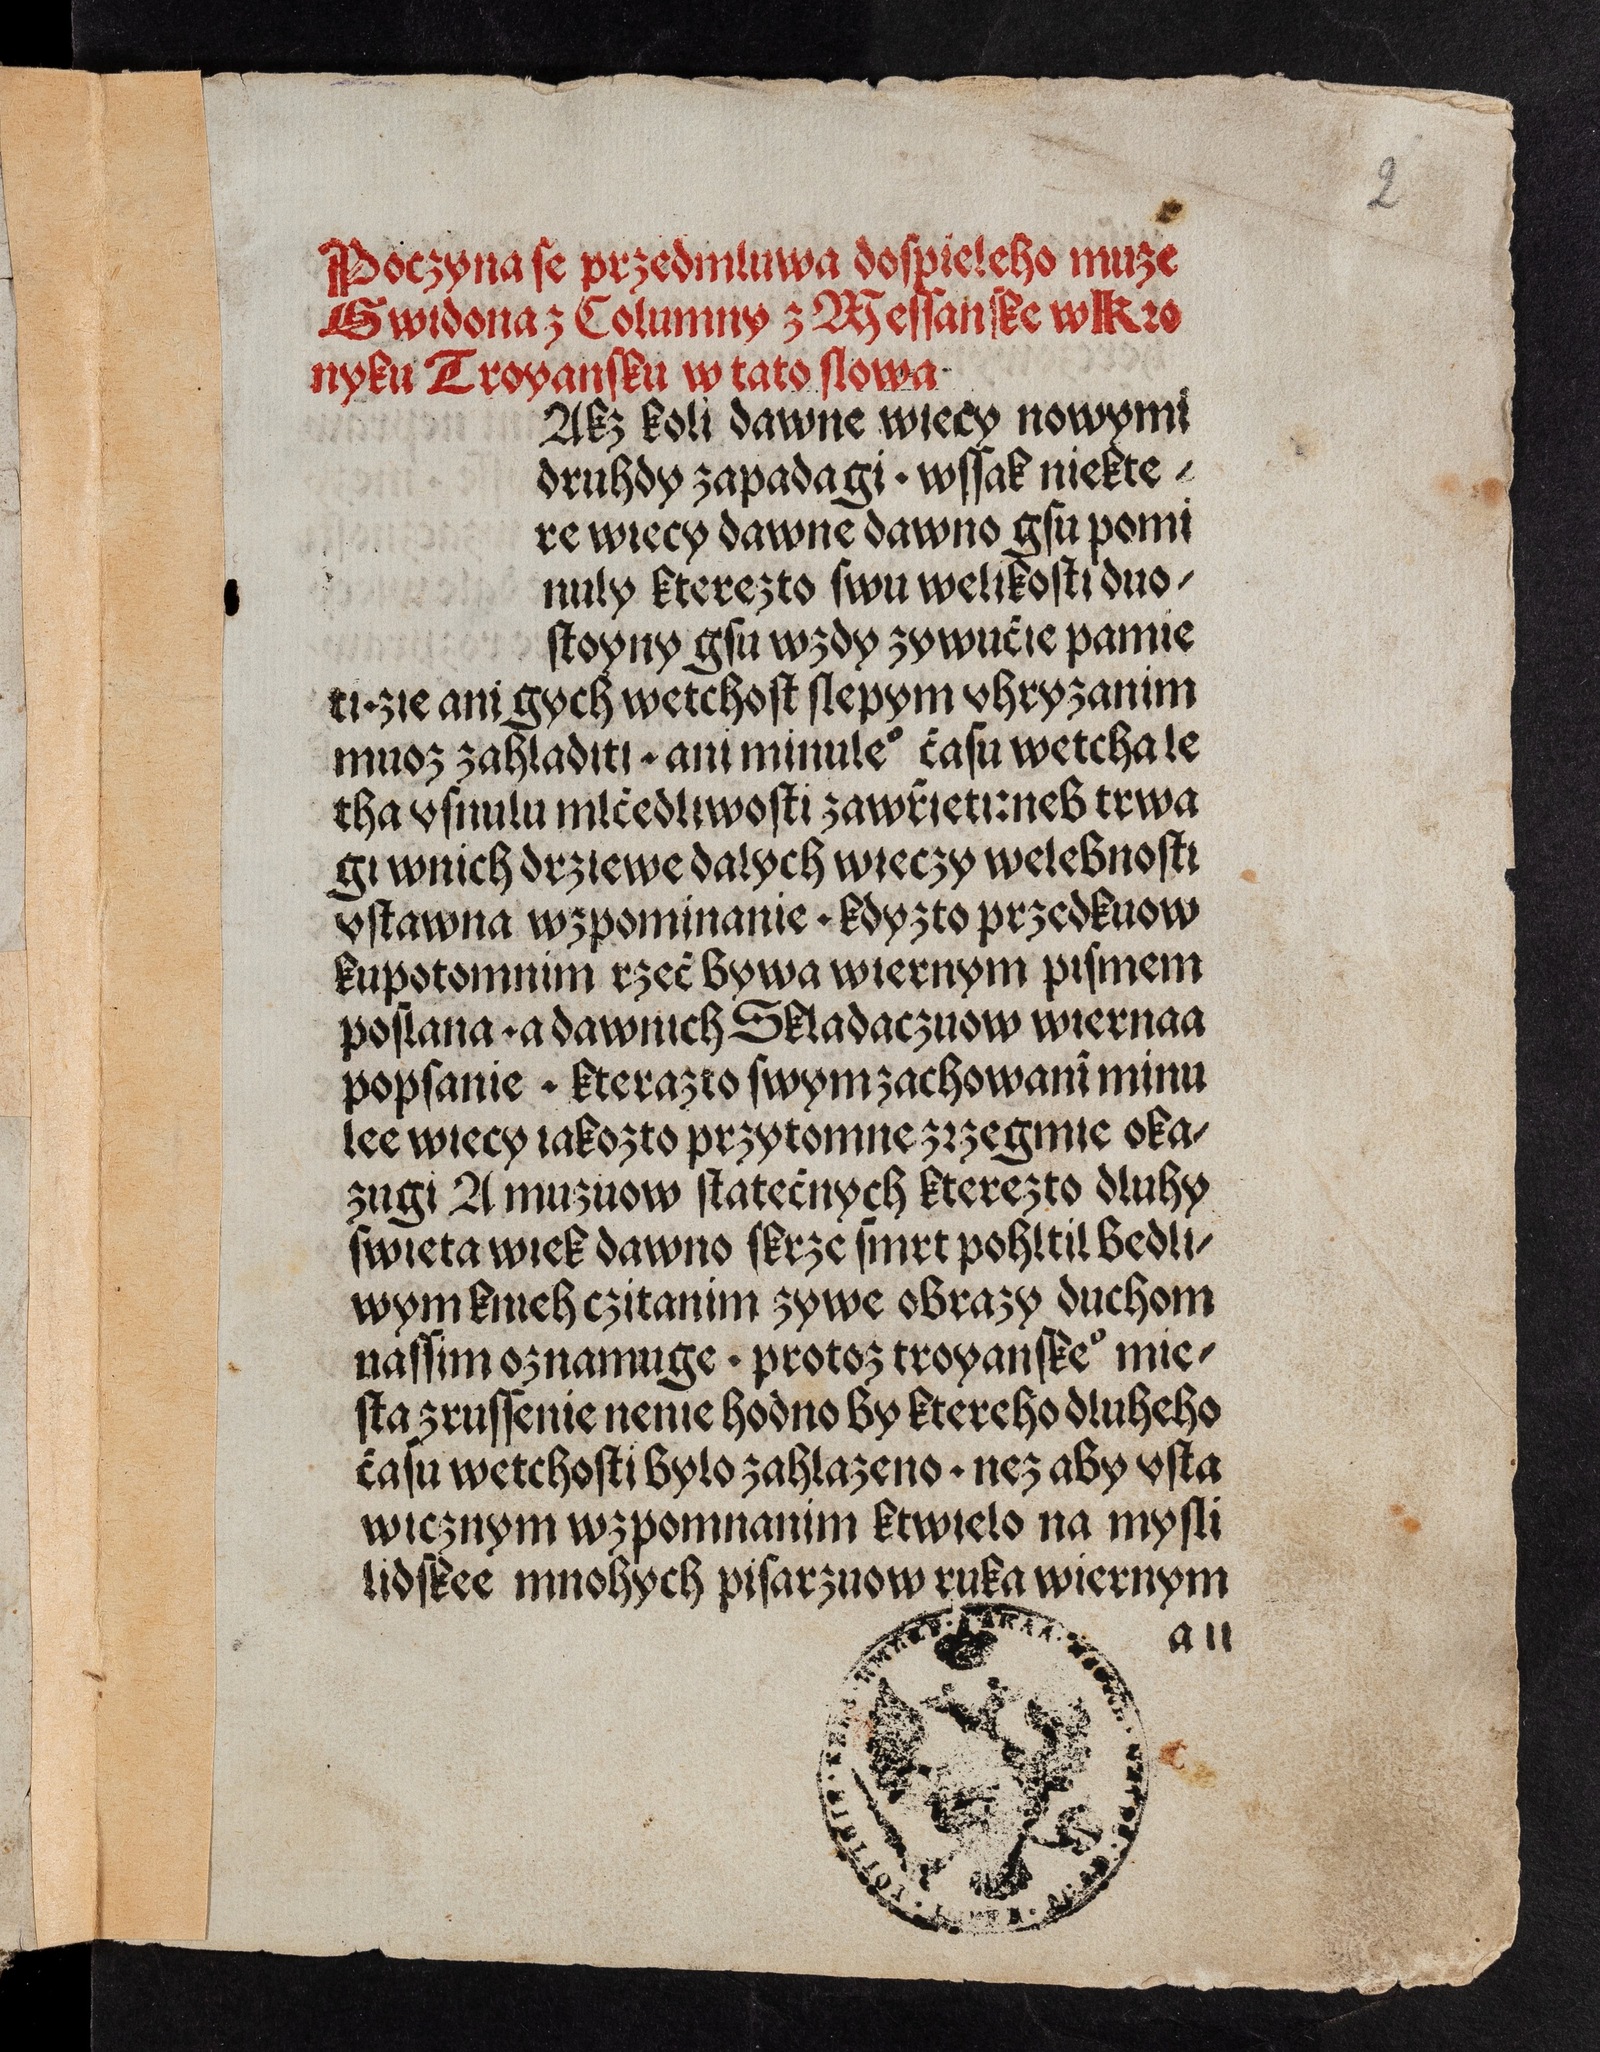 2
Poczyna se przedmluwa dospieleho muze
Gwidona z Columny z Messanske w Kro
nyku Troyansku w tato slowa
Akz koli dawne wiecy nowymi
druhdy zapadagi · wssak niekte /
re wiecy dawne dawno gsu pomi
nuly kterezto swu welikosti duo /
stoyny gsu wzdy zywučie pamie
ti · zie ani gych wetchost slepym vhryzanim
muoz zahladiti · ani minuleº času wetcha le
tha vsnulu mlčedliwosti zawřieti: neb trwa
gi wnich drziewe dalych wieczy welebnosti
vstawna wzpominanie · kdyzto przedkuow
kupotomnim rzeč bywa wiernym pismem
poslana · a dawnich Skladaczuow wiernaa
popsanie · kterazto swym zachowanī minu
lee wiecy iakozto przytomne zrzegmie oka /
zugi A muzuow statečnych kterezto dluhy
swieta wiek dawno skrze smrt pohltil bedli /
wym knieh czitanim zywe obrazy duchom
nassim oznamuge · protoz troyanskeº mie /
sta zrussenie nenie hodno by ktereho dluheho
času wetchosti bylo zahlazeno · nez aby vsta
wicznym wzpomnanim ktwielo na mysli
lidskee mnohych pisarzuow ruka wiernym
a ii